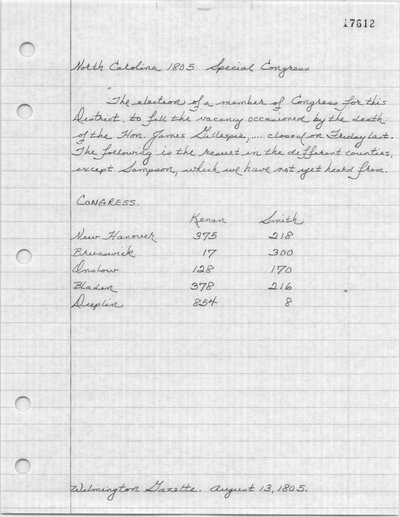 17612
North Carolina 1805 Special Congress
"The election of a member of Congress for this
District, to fill the vacancy occasioned by the death
of the Hon. James Gillespie, .... closed on Friday last.
The following is the result in the different counties,
except Sampson, which we have not yet heard from.
CONGRESS.
Kenan Smith
New Hanover 375 218
Brunswick 17 300
Onslow 128 170
Bladen 378 216 "
Duplin 854 8
Wilmington Gazette. August 13, 1805.